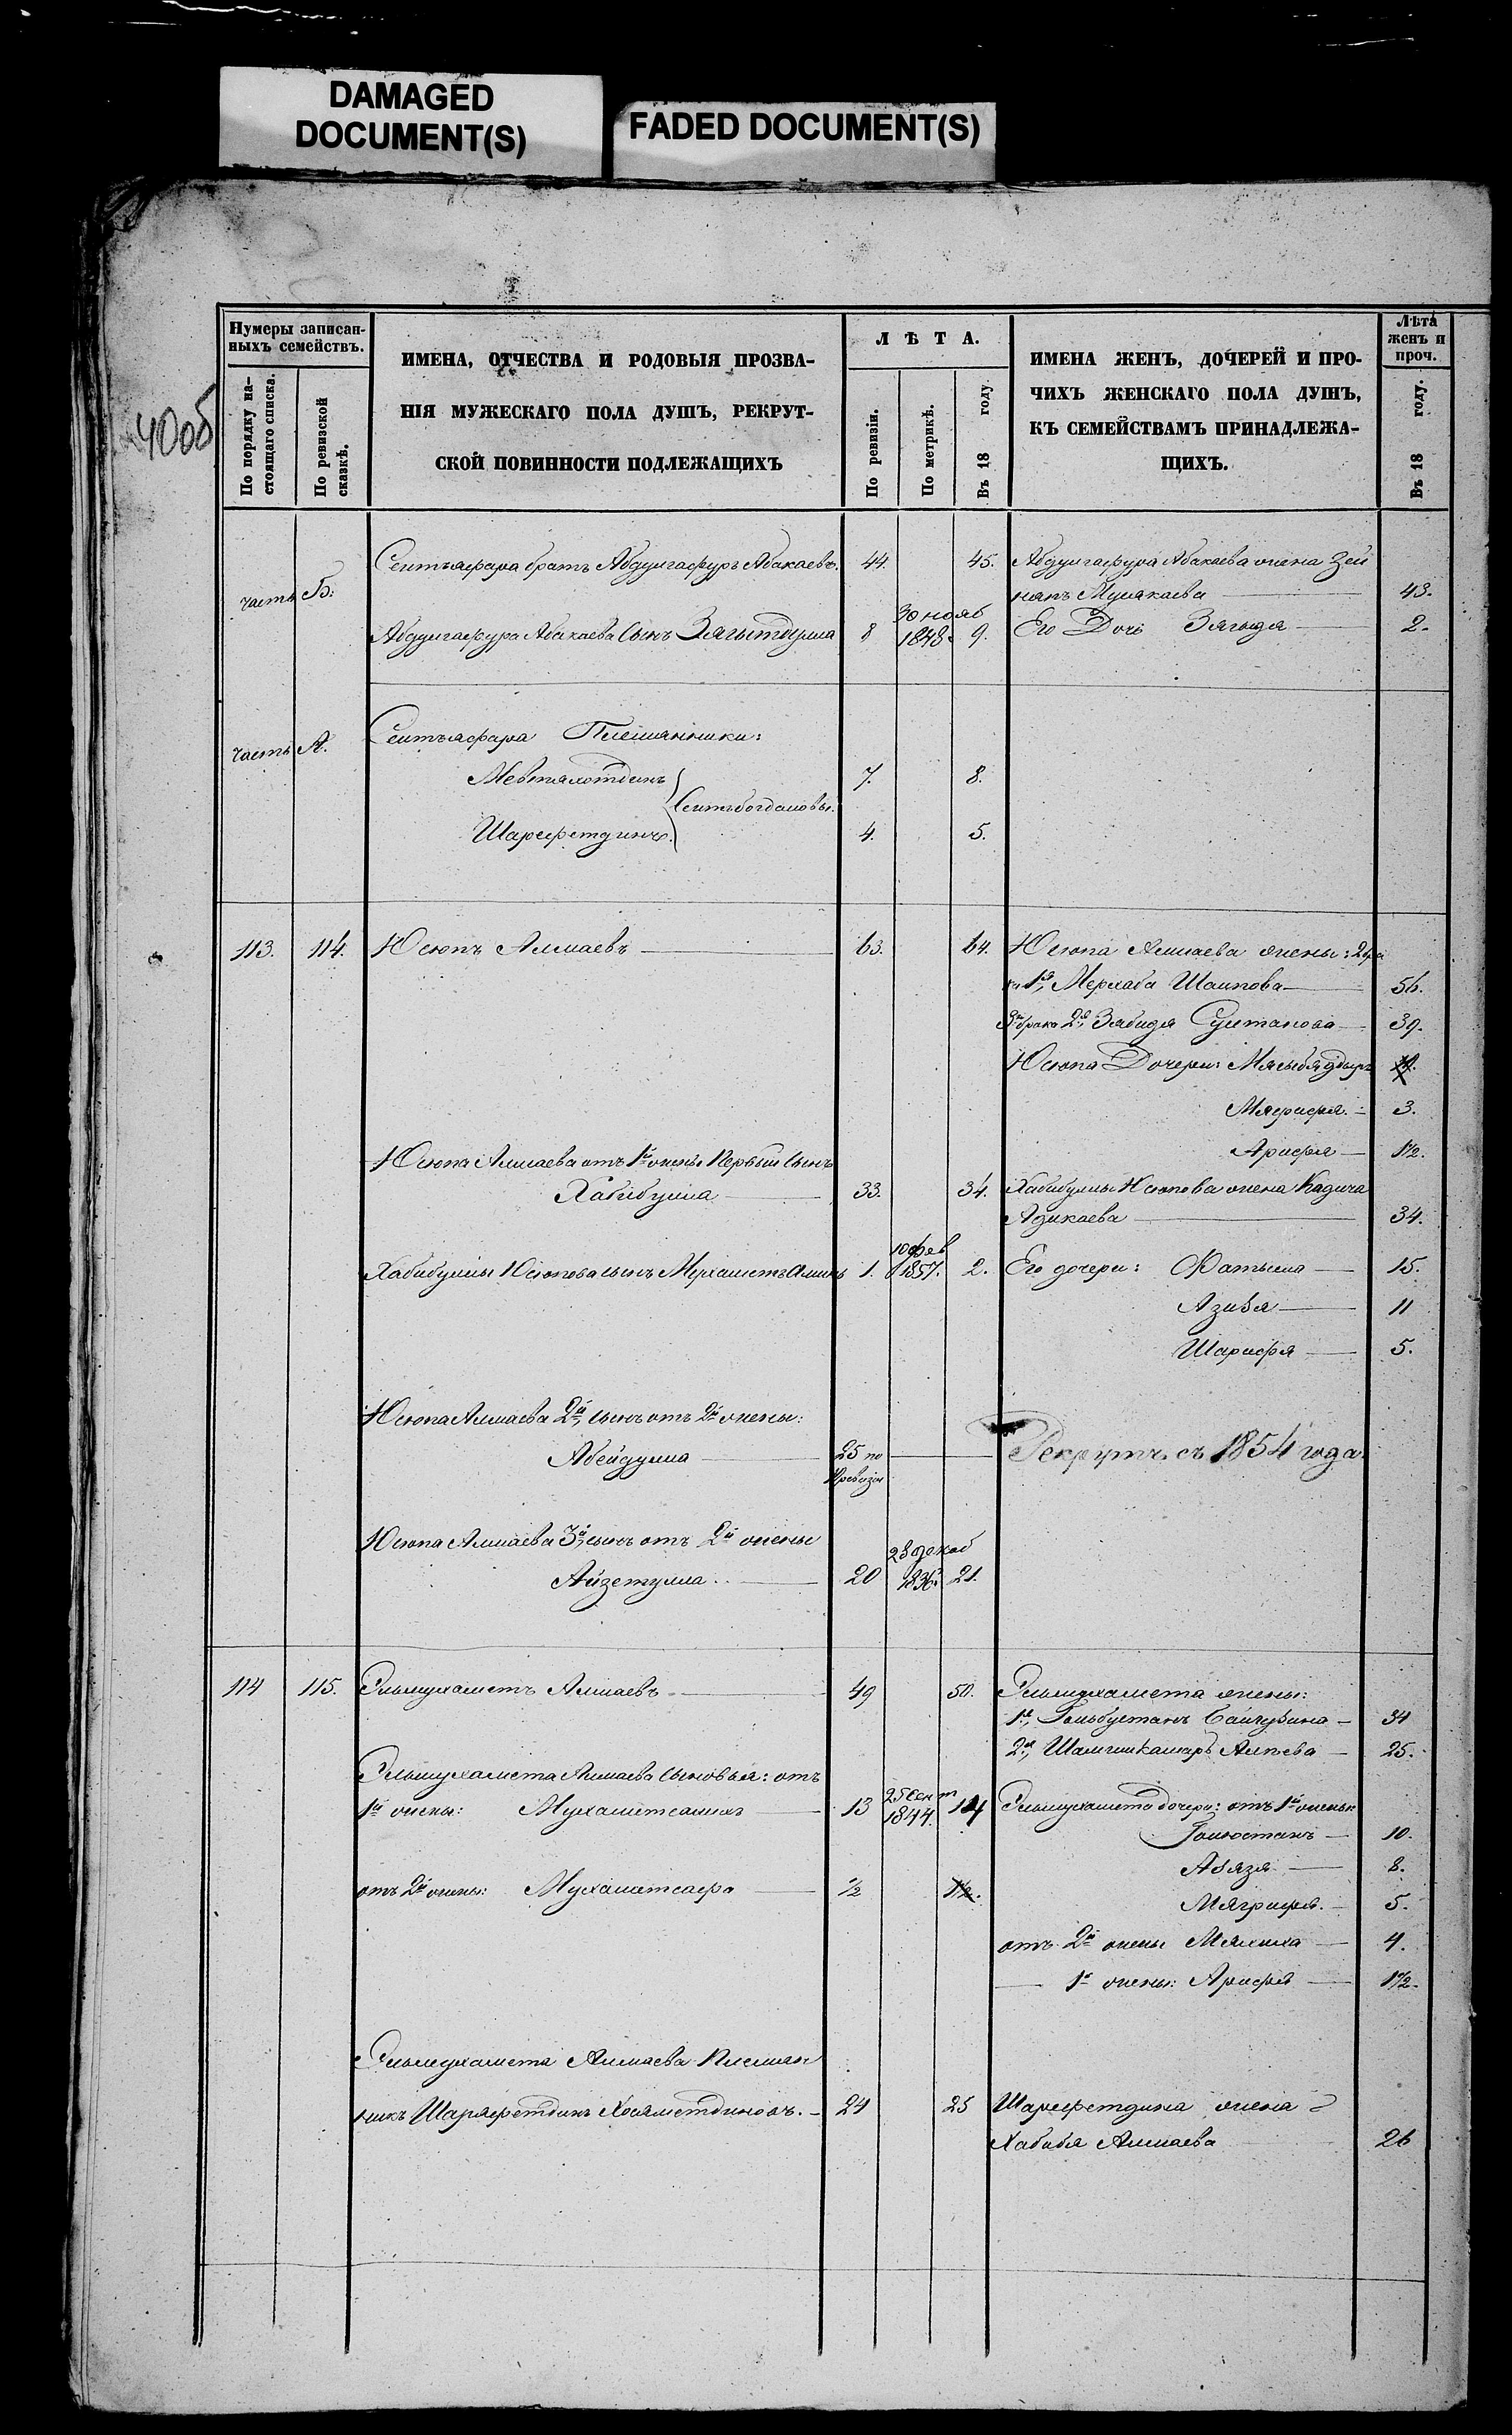 DAMAGED
DOCUMENT(S)
FADED DOCUMENT(S)
40об
Нумеры записан-
ныхъ семействъ.
По порядку на-
стоящаго списка.
По ревизской
сказкѣ.
ИМЕНА, ОТЧЕСТВА И РОДОВЫЯ ПРОЗВА-
НІЯ МУЖЕСКАГО ПОЛА ДУШЪ, РЕКРУТ-
СКОЙ ПОВИННОСТИ ПОДЛЕЖАЩИХЪ
ЛѢТА.
По ревизіи.
По метрикѣ.
Въ 18 году
ИМЕНА ЖЕНЪ, ДОЧЕРЕЙ И ПРО-
ЧИХЪ ЖЕНСКАГО ПОЛА ДУШЪ,
КЪ СЕМЕЙСТВАМЪ ПРИНАДЛЕЖА-
ЩИХЪ.
Лѣта
женъ и
проч.
Въ 18 году.
часть Б:
Сеитъяфара братъ Абдулгафуръ Абакаевъ. 44. 45. Абдулгафура Абакаева жена Зей
43.
30 нояб
Абдулгафура Абакаева сынъ 8 1848. 9. Его Дочь Зягида 2.
часть А.
Сеитъяфара Племянники:
7. 8.
Сеитбогдаловы.
Шарефетдинъ. 4. 5.
113. 114. Юсюпъ Алмаевъ 63. 64. Юсюпа Алмаева жены: 2я
1я, Мерхаба Шаипова 56.
брака 2я, Забида Султанова 39.
Юсюпа Дочери:
Мяфифя. 3.
Юсюпа Алмаева отъ 1й жены Первый сынъ
Арифя 1½.
Хабибулла 33. 34. Хабибуллы Юсюпова жена Кадича
Адикаева 34.
10 фев
Хабибуллы Юсюпова сынъ Мухаметъ Аминъ 1. 1857. 2. Его дочери: Фатыма 15.
Азибя 11
Шарифя 5.
Юсюпа Алмаева 2й, сынъ отъ 2й жены:
Абейдулла 25 по Рекрутъ съ 1854 года.
ревизіи
Юсюпа Алмаева 3й, сынъ отъ 2й жены
28 декаб
Айзетулла 20 1836. 21.
114 115. Эльмухаметъ Алмаевъ. 49 50. Эльмухамета жены:
1я, Гюльбустанъ 34
2я, 25.
Эльмухамета Алмаева сыновья: отъ
25 Сент
1й жены: 13 1844. 14 Эльмухамета дочери: отъ 1й жены:
Гюлюстанъ 10.
Абязя 8.
отъ 2й жены: Мухаметсафа ½ 1½.
5.
отъ 2й жены 4.
1й жены: Арифя 1½.
Эльмухамета Алмаева племян
никъ Шаряфетдинъ 24 25 Шарефетдина жена
Хабибя Алмаева 26